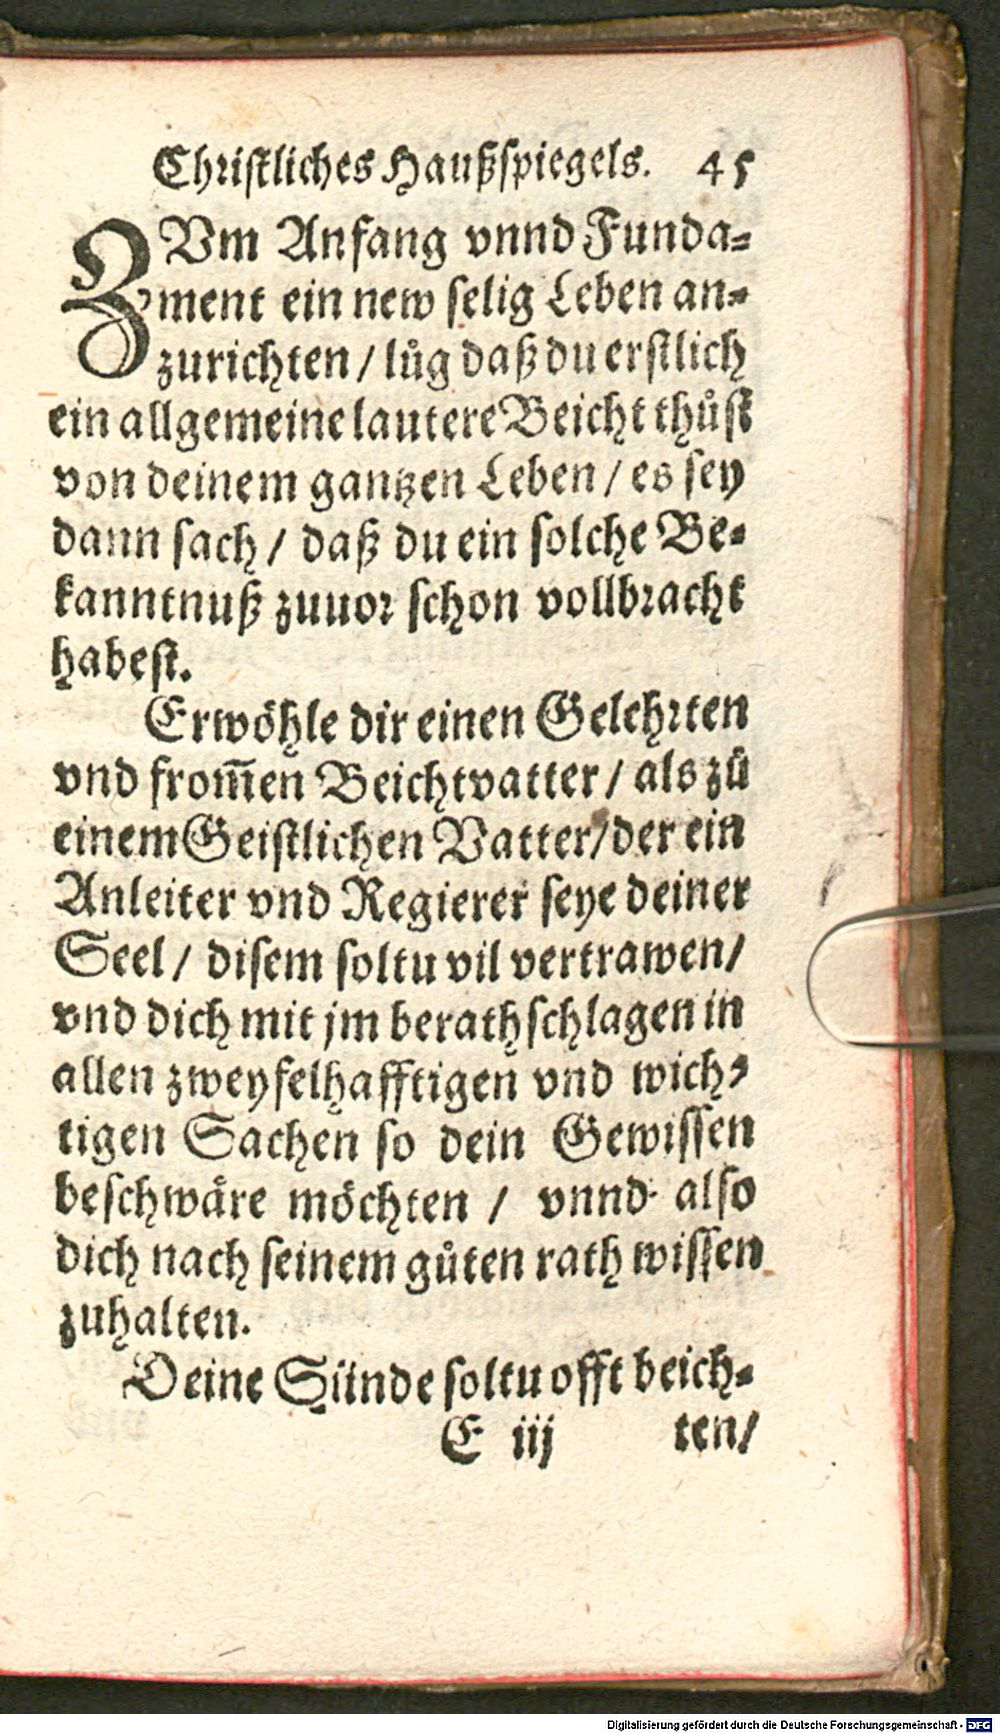 Christliches Haußspiegels. 45
ZVm Anfang vnnd Funda-
ment ein new selig Leben an-
zurichten / lůg daß du erstlich
ein allgemeine lautere Beicht thůst
von deinem gantzen Leben / es sey
dann sach / daß du ein solche Be-
kanntnuß zuuor schon vollbracht
habest.
Erwöhle dir einen Gelehrten
vnd from̃en Beichtvatter / als zů
einem Geistlichen Vatter/der ein
Anleiter vnd Regierer seye deiner
Seel / disem soltu vil vertrawen/
vnd dich mit jm berathschlagen in
allen zweyfelhafftigen vnd wich-
tigen Sachen so dein Gewissen
beschwäre möchten / vnnd also
dich nach seinem gůten rath wissen
zuhalten.
Deine Sünde soltu offt beich-
E iij ten/
Digitalisierung gefördert durch die Deutsche Forschungsgemeinschaft - DFG